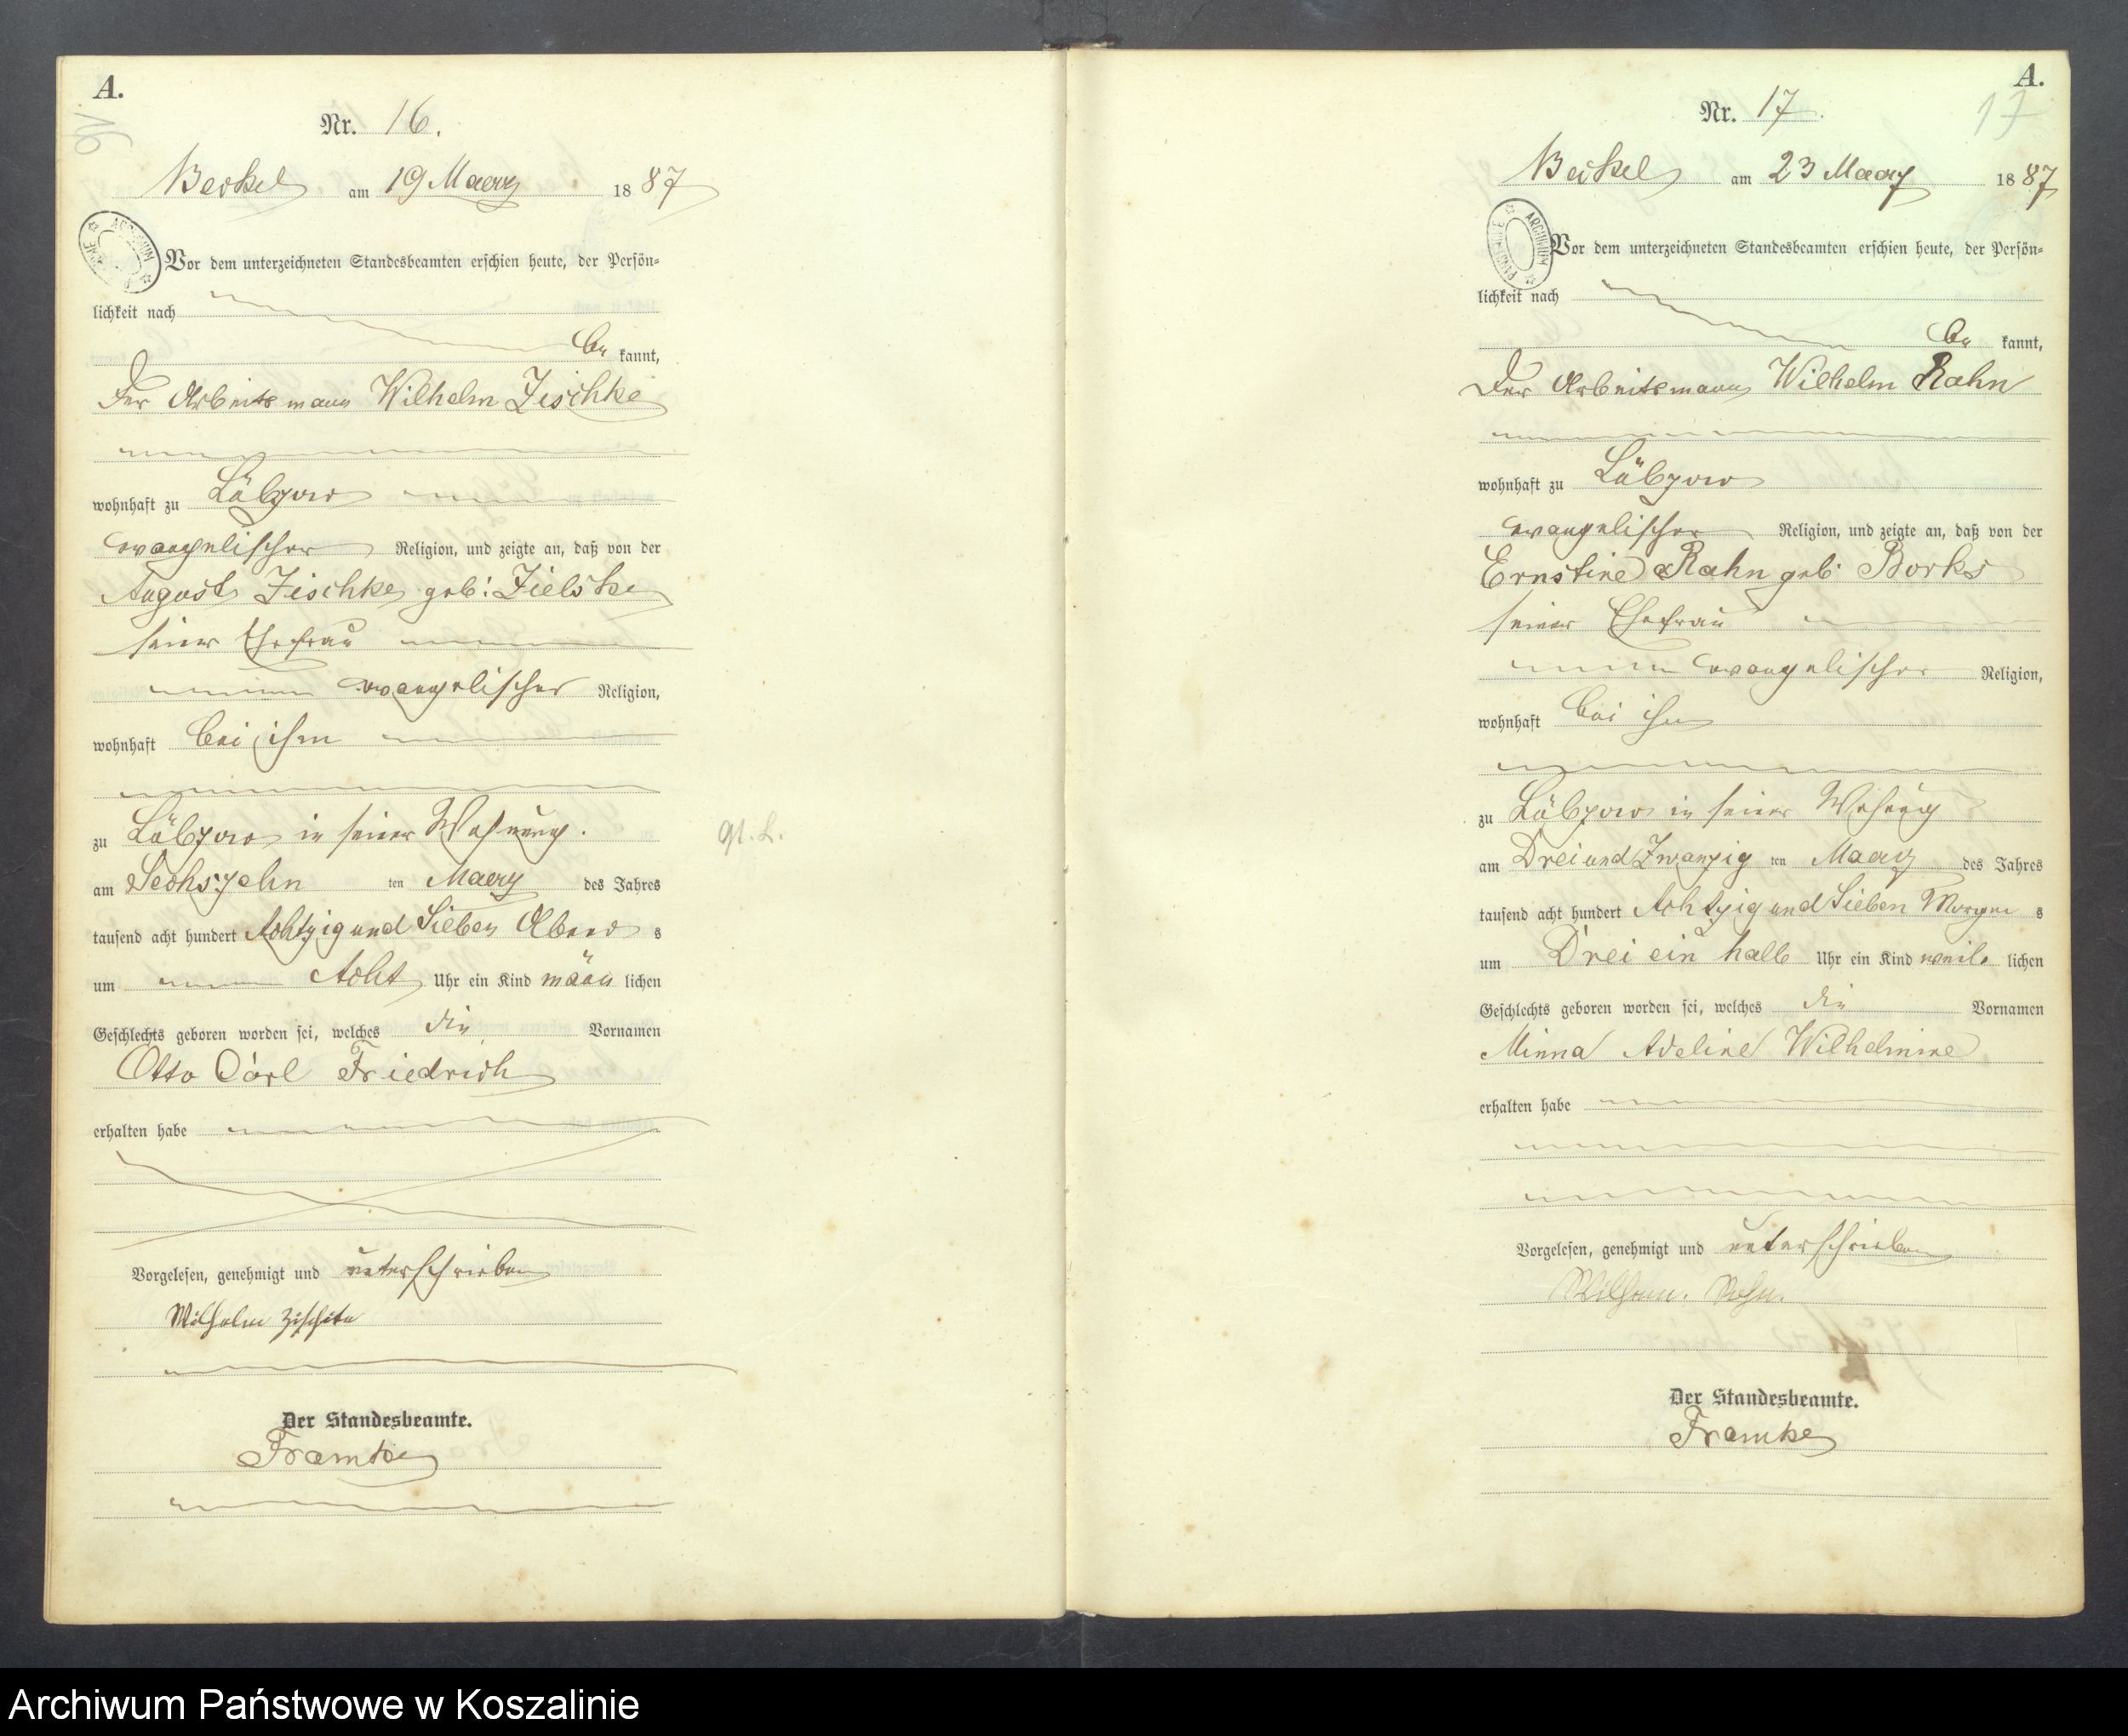 A.
16
Nr. 16.
Beckel am 19 Maerz 1887
Vor dem unterzeichneten Standesbeamten erschien heute, der Persön=
lichkeit nach
be kannt,
Der Arbeitsmann Wilhelm Zischke
wohnhaft zu Lübzow
evangelischer Religion, und zeigte an, daß von der
August Zischke geb: Zielske
seiner Ehefrau
evangelischer Religion,
wohnhaft bei ihm
zu Lübzow in seiner Wohnung.
am Sechszehn ten Maerz des Jahres
tausend acht hundert Achtzig und Sieben Abend s
um Acht Uhr ein Kind männ lichen
Geschlechts geboren worden sei, welches die Vornamen
Otto Carl Friedrich
erhalten habe
Vorgelesen, genehmigt und unterschrieben
Wilhelm Zischke
Der Standesbeamte.
Framke
A.
17
Nr. 17.
Beckel am 23 Maerz 1887
ARCHIWUM
Vor dem unterzeichneten Standesbeamten erschien heute, der Persön=
lichkeit nach
be kannt,
Der Arbeitsmann Wilhelm Rahn
wohnhaft zu Lübzow
evangelischer Religion, und zeigte an, daß von der
Ernstine Rahn geb: Borks
seiner Ehefrau
evangelischer Religion,
wohnhaft bei ihm
zu Lübzow in seiner Wohnung
am Drei und Zwanzig ten Maerz des Jahres
tausend acht hundert Achtzig und Sieben Morgen s
um Drei ein halb Uhr ein Kind weib lichen
Geschlechts geboren worden sei, welches die Vornamen
Minna Adeline Wilhelmine
erhalten habe
Vorgelesen, genehmigt und unterschrieben
Wilhelm. Rahn.
Der Standesbeamte.
Framke
Archiwum Państwowe w Koszalinie